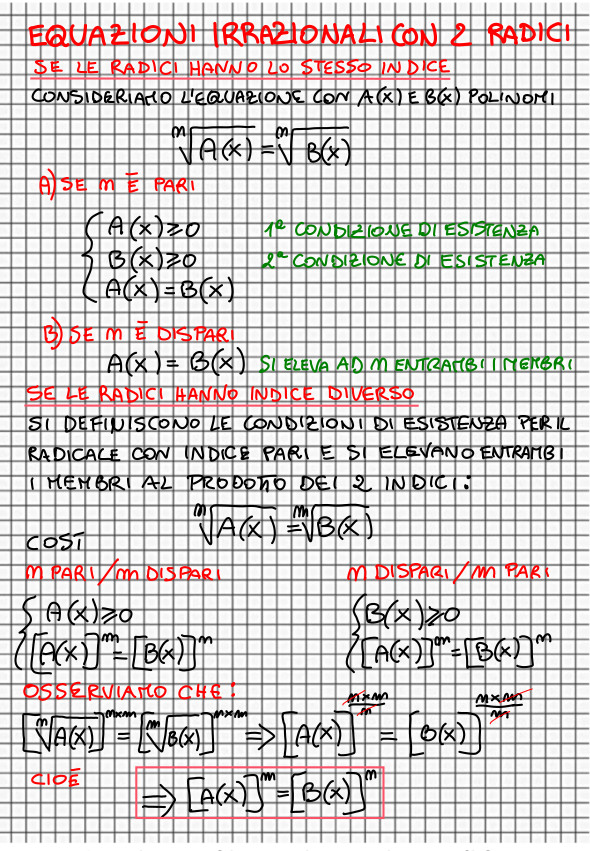 EQUAZIONI IRRAZIONALI CON 2 RADICI
SE LE RADICI HANNO LO STESSO INDICE
CONSIDERIAMO L'EQUAZIONE CON A(X) E B(X) POLINOMI
ⁿ√A(X) = ⁿ√B(X)
A) SE n È PARI
{ A(X)⩾0 1ª CONDIZIONE DI ESISTENZA
B(X)⩾0 2ª CONDIZIONE DI ESISTENZA
A(X)=B(X)
B) SE n È DISPARI
A(X) = B(X) SI ELEVA AD n ENTRAMBI I MEMBRI
SE LE RADICI HANNO INDICE DIVERSO
SI DEFINISCONO LE CONDIZIONI DI ESISTENZA PER IL
RADICALE CON INDICE PARI E SI ELEVANO ENTRAMBI
I MEMBRI AL PRODOTTO DEI 2 INDICI:
ⁿ√A(X) = ᵐ√B(X)
COSÌ
n PARI/m DISPARI n DISPARI/m PARI
{ A(X)⩾0 { B(X)⩾0
[A(X)]ᵐ=[B(X)]ⁿ [A(X)]ᵐ=[B(X)]ⁿ
OSSERVIAMO CHE:
[ⁿ√A(X)]ⁿˣᵐ = [ᵐ√B(X)]ⁿˣᵐ ⇒ [A(X)]^(n×m/n) = [B(X)]^(n×m/m)
CIOÈ ⇒ [A(X)]ᵐ=[B(X)]ⁿ